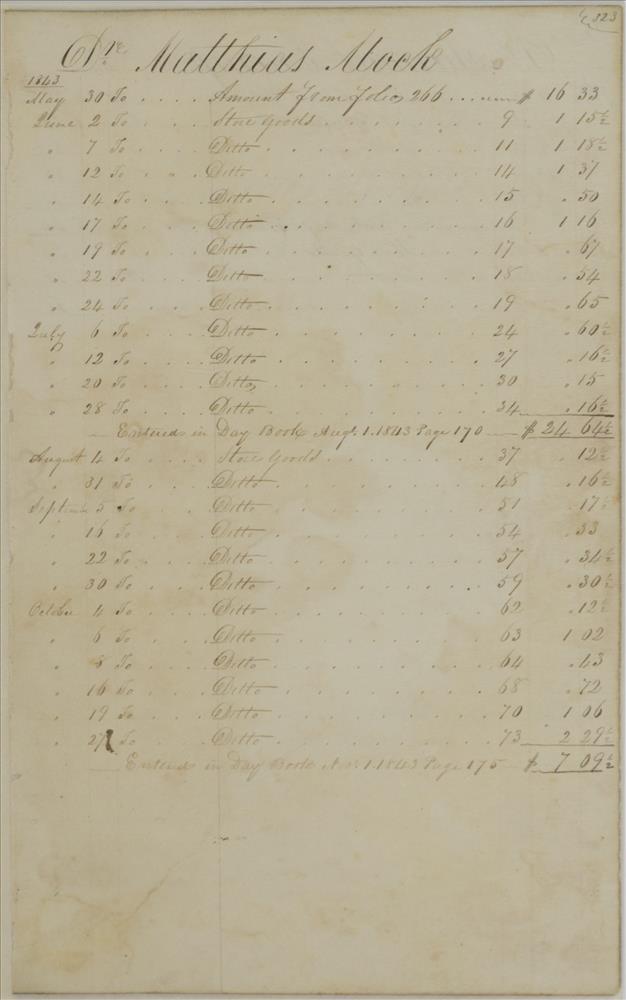 323
Dre. Matthias Mock
1843
May 30 To . . . . Amount from folio 266 . . . $ 16 33
June 2 To . . . . Store Goods . . . . . . . . 9 1 15½
" 7 To . . . . Ditto . . . . . . . . 11 1 18½
" 12 To . . . . Ditto . . . . . . . . 14 1 37
" 14 To . . . . Ditto . . . . . . . . 15 . 50
" 17 To . . . . Ditto . . . . . . . . 16 1 16
" 19 To . . . . Ditto . . . . . . . . 17 . 67
" 22 To . . . . Ditto . . . . . . . . 18 . 54
" 24 To . . . . Ditto . . . . . . . . 19 . 65
July 6 To . . . . Ditto . . . . . . . . 24 . 60½
" 12 To . . . . Ditto . . . . . . . . 27 . 16½
" 20 To . . . . Ditto . . . . . . . . 30 . 15
" 28 To . . . . Ditto . . . . . . . . 34 . 16½
Entered in Day Book Augt. 1. 1843 Page 170 $ 24 64½
August 4 To . . . . Store Goods . . . . . . . . 37 . 12½
" 31 To . . . . Ditto . . . . . . . . 48 . 16½
Septem 5 To . . . . Ditto . . . . . . . . 51 . 17½
" 16 To . . . . Ditto . . . . . . . . 54 . 33
" 22 To . . . . Ditto . . . . . . . . 57 . 34½
" 30 To . . . . Ditto . . . . . . . . 59 . 30½
October 4 To . . . . Ditto . . . . . . . . 62 . 12½
" 6 To . . . . Ditto . . . . . . . . 63 1 02
" 8 To . . . . Ditto . . . . . . . . 64 . 43
" 16 To . . . . Ditto . . . . . . . . 68 . 72
" 19 To . . . . Ditto . . . . . . . . 70 1 06
" 27 To . . . . Ditto . . . . . . . . 73 2 29½
Entered in Day Book 1. 1843 Page 175 $ 7 09½